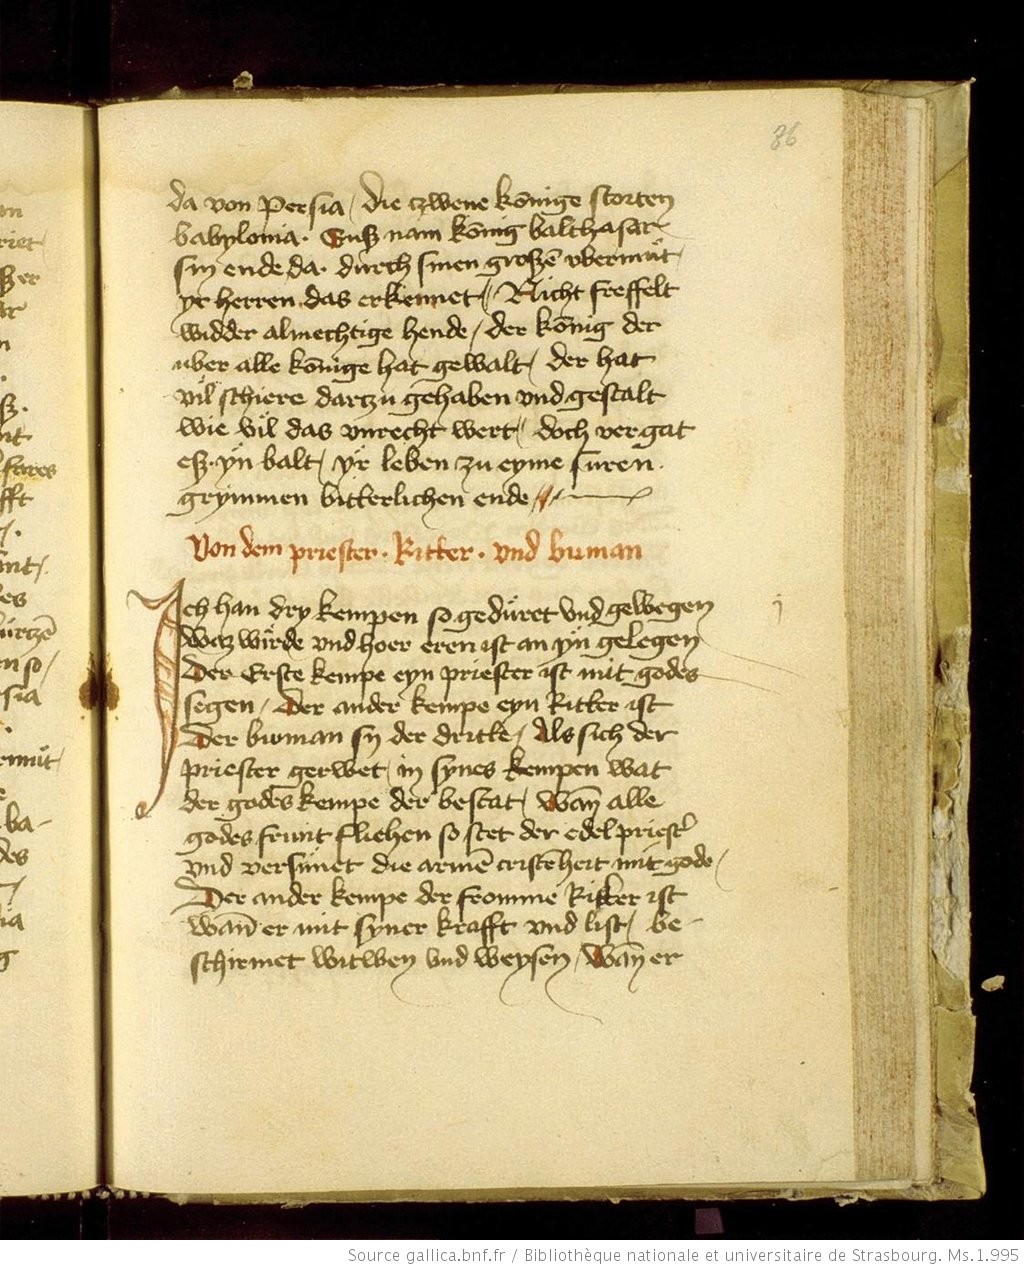 86
da von Persia / die czwene kőnige storten
babylonia . Suß nam kőnig balthasar
sin ende da . durch sinen großē vbermůt /
yr herren das erkennet // Nicht freffelt
widder almechtige hende / der kőnig der
uber alle kőnige hat gewalt / der hat
vil schiere darczu gehaben vnd gestalt
wie vil das vnrecht wert // doch vergat
eß . yn balt / yr leben zu eyme suren .
grymmen bitterlichen ende //
Von dem priester . Ritter . vnd buman
Ich han dry kempen so gedüret vnd gewegen
waz wirde vnd hoer eren ist an yn gelegen
Der Erste kempe eyn priester ist mit godes
segen / Der ander kempe eyn Ritter ist
Der buman sy der dritte / Als sich der
priester gerwet / in synes kempen wat
der godes kempe der bestat / Wan̄ alle
godes frunt fliehen so stet der edel priest̕
vnd versűnet die armē cristēheit mit gode /
Der ander kempe der fromme Ritter ist
wan̄ er mit syner krafft vnd list / be-
schirmet witwen vnd weysen / Wan̄ er
riet
ßer
ß .
fares
fft
sia
ba-
des